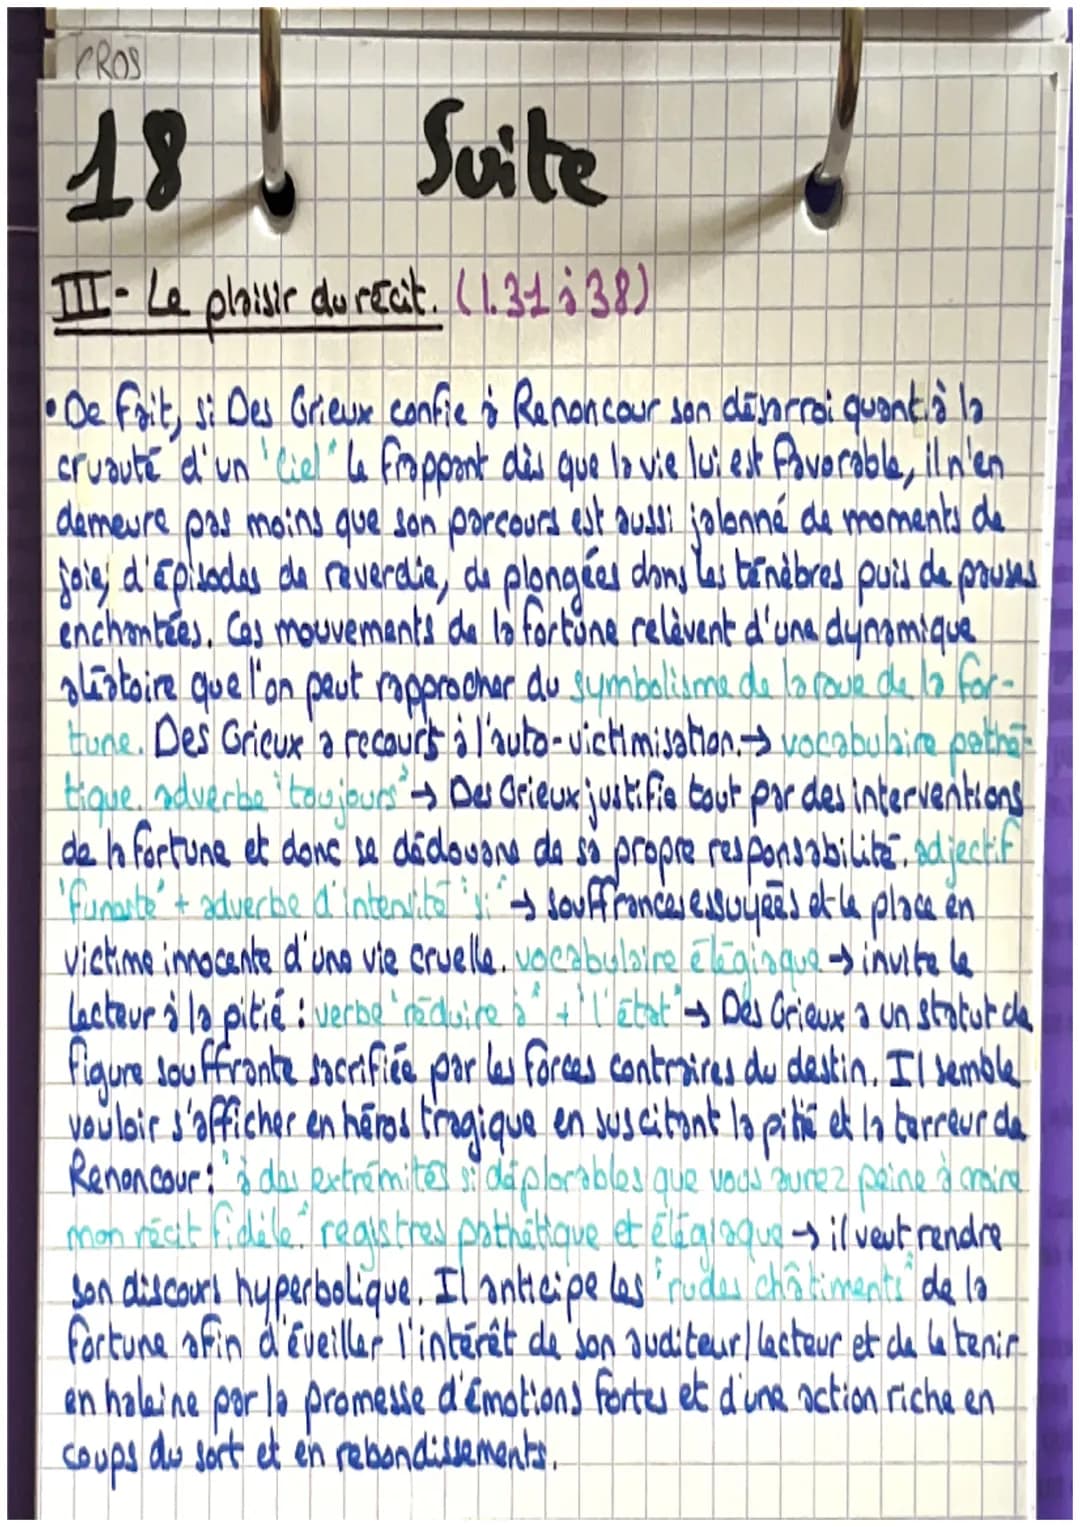 CROS
18 Suite
III - Le plaisir du récit. (l.31 à 38)
• De fait, si Des Grieux confie à Renoncour son désarroi quant à la
cruauté d'un "Ciel" le frappant dès que la vie lui est favorable, il n'en
demeure pas moins que son parcours est aussi jalonné de moments de
joie, d'épisodes de reverdie, de plongées dans les ténèbres puis de pauses
enchantées. Ces mouvements de la fortune relèvent d'une dynamique
aléatoire que l'on peut rapprocher du symbolisme de la roue de la for-
tune. Des Grieux a recours à l'auto-victimisation. → vocabulaire pathé-
tique. adverbe "toujours" → Des Grieux justifie tout par des interventions
de la fortune et donc se dédouane de sa propre responsabilité. adjectif
"funeste" + adverbe d'intensité "si" → souffrances essuyées et le place en
victime innocente d'une vie cruelle. vocabulaire élégiaque → invite le
lecteur à la pitié : verbe "réduire à" + "l'état" → Des Grieux a un statut de
figure souffrante sacrifiée par les forces contraires du destin. Il semble
vouloir s'afficher en héros tragique en suscitant la pitié et la terreur de
Renoncour : "à des extrémités si déplorables que vous aurez peine à croire
mon récit fidèle." registres pathétique et élégiaque → il veut rendre
son discours hyperbolique. Il anticipe les "rudes châtiments" de la
fortune afin d'éveiller l'intérêt de son auditeur/lecteur et de le tenir
en haleine par la promesse d'émotions fortes et d'une action riche en
coups du sort et en rebondissements.